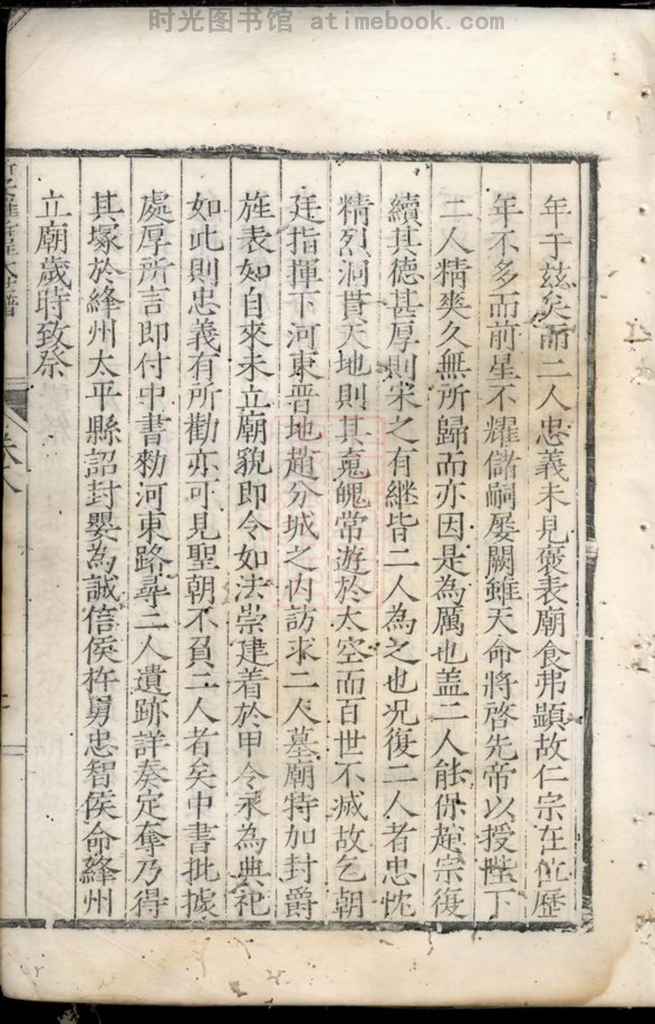 时光图书馆 atimebook.com
年于兹矣而二人忠義未見褒表廟食弗顯故仁宗在位歷
年不多而前星不耀儲嗣屡闕雖天命將啓先帝以授陛下
二人精爽久無所歸而亦因是為厲也盖二人能保趙宗復
續其德甚厚則宋之有継皆二人為之也况復二人者忠忱
精烈洞貫天地則其䰟魄常遊於太空而百世不㓕故乞朝
廷指揮下河東晋地趙分城之内訪求二人墓廟特加封爵
旌表如自來未立廟貌即令如法崇建着於甲令永為典祀
如此則忠義有所勸亦可見聖朝不負二人者矣中書批據
處厚所言即付中書勑河東路尋二人遺跡詳奏定奪乃得
其塚於絳州太平縣詔封嬰為誠信侯杵臼忠智侯命絳州
立廟歲時致祭